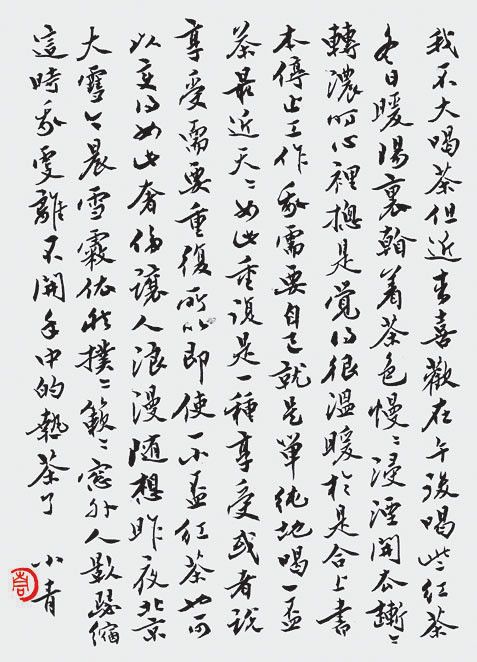 我不大喝茶但近来喜歡在午後喝些紅茶
冬日暖陽裏着茶色慢〻浸湮開去漸〻
轉濃時心裡總是覺得很溫暖於是合上書
本停止工作我需要自己就是單純地喝一盃
茶最近天〻如此重複是一種享受或者說
享受需要重復所以即使一小盃紅茶也可
以変得如此奢侈讓人浪漫随想昨夜北京
大雪今晨雪霰依然撲〻簌〻窓外人影瑟縮
這時我更離不開手中的熱茶了
小青